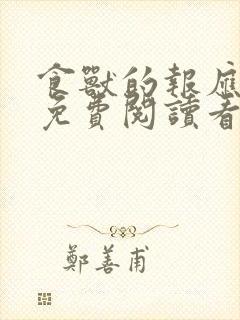 食獸的報應
免費閱讀者
鄭善甫